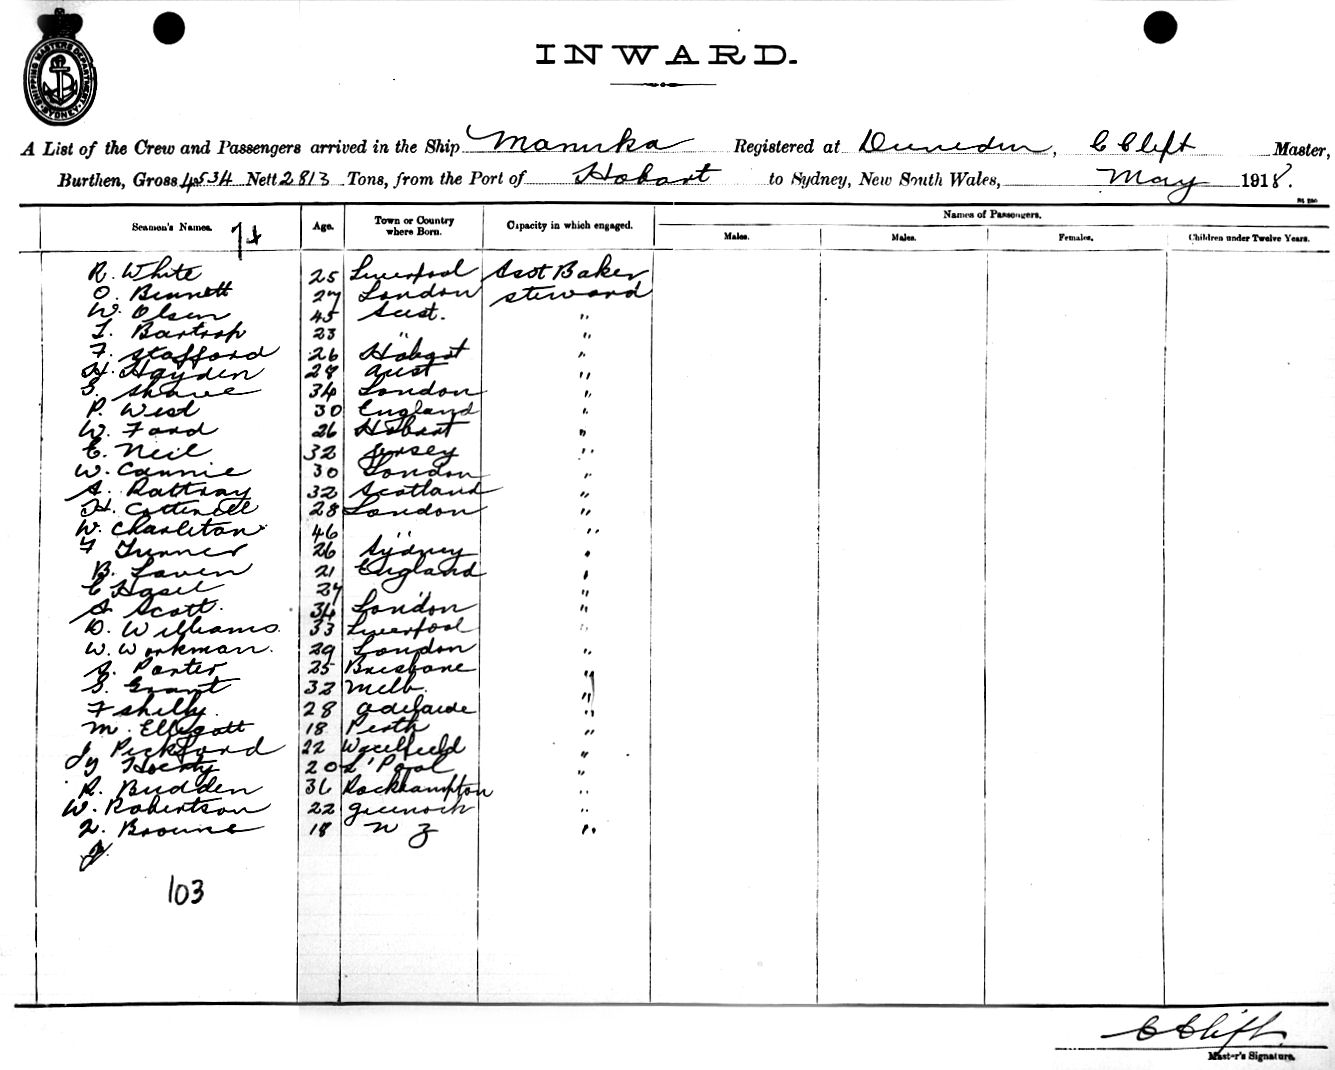 SHIPPING MASTERS DEPARTMENT SYDNEY
INWARD.
A List of the Crew and Passengers arrived in the Ship Manuka Registered at Dunedin, C Clift Master,
Burthen, Gross 4534 Nett 2813 Tons, from the Port of Hobart to Sydney, New South Wales, May 1918.
Seamen's Names. Age. Town or Country where Born. Capacity in which engaged. Names of Passengers.
Males. Males. Females. Children under Twelve Years.
R. White 25 Liverpool Asst Baker
O. Bennett 27 London steward
W. Olsen 45 Aust. "
T. Bartrop 23 " "
F. Stafford 26 Hobart "
H. Hayden 28 Aust "
S. Shave 34 London "
P. West 30 England "
W. Ford 26 Hobart "
E. Neil 32 Jersey "
W. Cannie 30 London "
A. Rattray 32 Scotland "
H. Cotterell 28 London "
W. Charleton 46 " "
F Turner 26 Sydney "
B. Laven 21 England "
C 27 "
A Scott. 34 London "
D. Williams. 33 Liverpool "
W. Workman. 29 London "
A. Porter 25 Brisbane "
S. Grant 32 Melb. "
F Shelly. 28 Adelaide "
M. Ellegott 18 Perth "
J. Pickford 22 "
20 L'Pool "
R. Budden 36 Rockhampton "
W. Robertson 22 Greenock "
Browne 18 N Z "
103
C Clift.
Master's Signature.